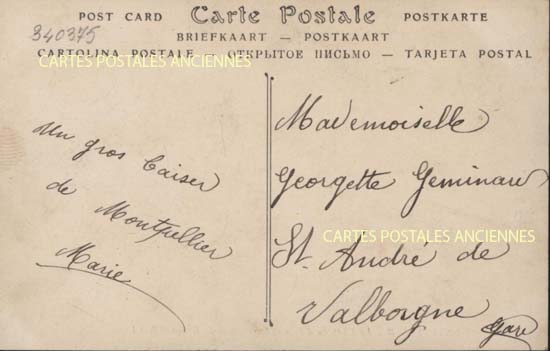 POST CARD Carte Postale POSTKARTE
BRIEFKAART — POSTKAART
CARTOLINA POSTALE — ОТКРЫТОЕ ПИСЬМО — TARJETA POSTAL
340375
CARTES POSTALES ANCIENNES
un gros baiser
de Montpellier
Marie
Mademoiselle
Georgette
CARTES POSTALES ANCIENNES
St. André de
Valborgne
Gare